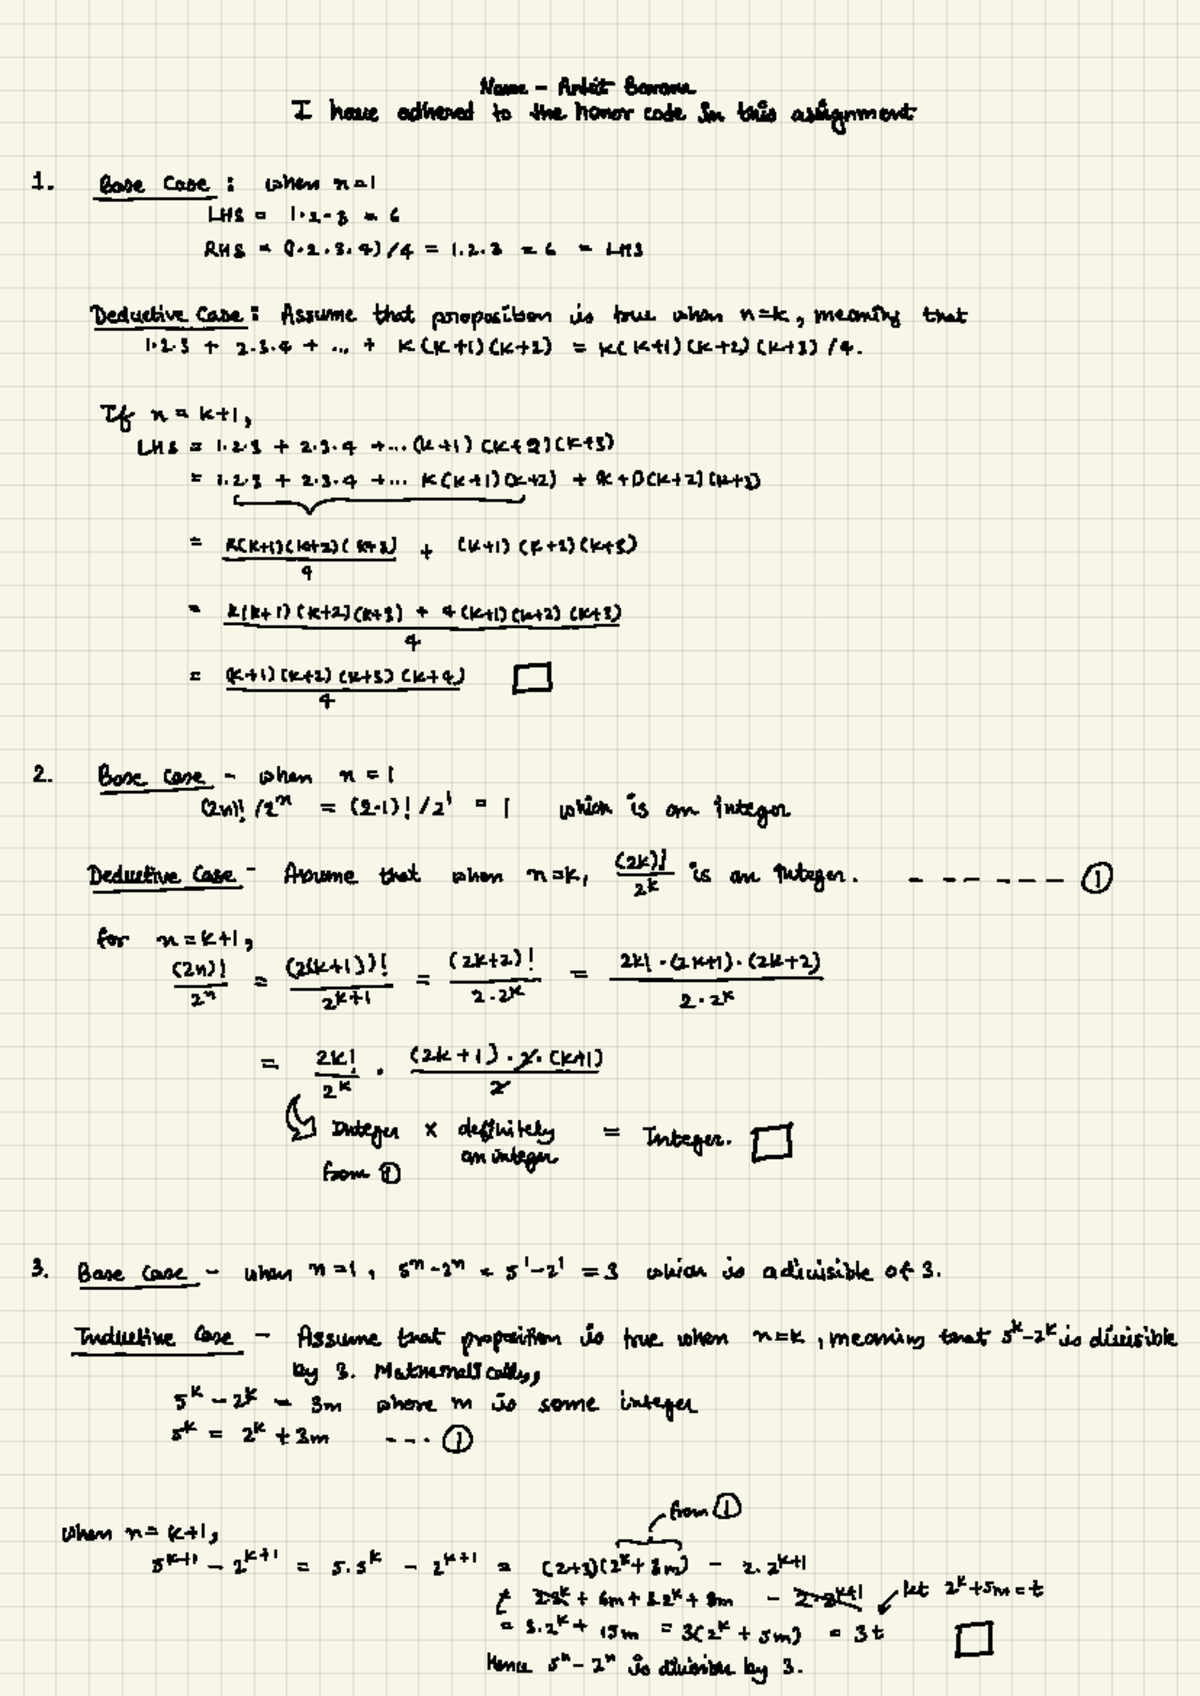 Name - Ankit
I have adhered to the honor code in this assignment
1. Base Case : when n=1
LHS = 1.2.3 = 6
RHS = (1.2.3.4)/4 = 1.2.3 = 6 = LHS
Deductive Case : Assume that proposition is true when n=k, meaning that
1.2.3 + 2.3.4 + ... + k(k+1)(k+2) = k(k+1)(k+2)(k+3)/4.
If n = k+1,
LHS = 1.2.3 + 2.3.4 +... (k+1)(k+2)(k+3)
= 1.2.3 + 2.3.4 +... k(k+1)(k+2) + (k+1)(k+2)(k+3)
= k(k+1)(k+2)(k+3)/4 + (k+1)(k+2)(k+3)
= k(k+1)(k+2)(k+3) + 4(k+1)(k+2)(k+3) / 4
= (k+1)(k+2)(k+3)(k+4) / 4 □
2. Base Case - when n = 1
(2n)!/2^n = (2.1)!/2^1 = 1 which is an integer
Deductive Case - Assume that when n=k, (2k)!/2^k is an Integer. - - - - - - ①
for n=k+1,
(2n)!/2^n = (2(k+1))!/2^{k+1} = (2k+2)!/2.2^k = 2k!.(2k+1).(2k+2)/2.2^k
= 2k!/2^k . (2k+1).2.(k+1)/2
Integer × definitely an integer = Integer. □
from ①
3. Base Case - when n=1, 5^n-2^n = 5^1-2^1 = 3 which is a divisible of 3.
Inductive Case - Assume that proposition is true when n=k, meaning that 5^k-2^k is divisible
by 3. Mathematically,
5^k - 2^k = 3m where m is some integer
5^k = 2^k + 3m --- ①
from ①
when n = k+1,
5^{k+1} - 2^{k+1} = 5.5^k - 2^{k+1} = (2+3)(2^k+3m) - 2.2^{k+1}
= 2.2^k + 6m + 3.2^k + 9m - 2.2^{k+1} let 2^k+5m=t
= 3.2^k + 15m = 3(2^k + 5m) = 3t □
Hence 5^n - 2^n is divisible by 3.